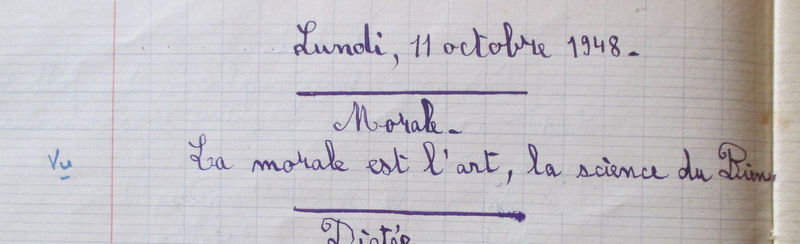 Lundi, 11 octobre 1948.
Morale.
Vu
La morale est l'art, la science du Bien.
Dictée